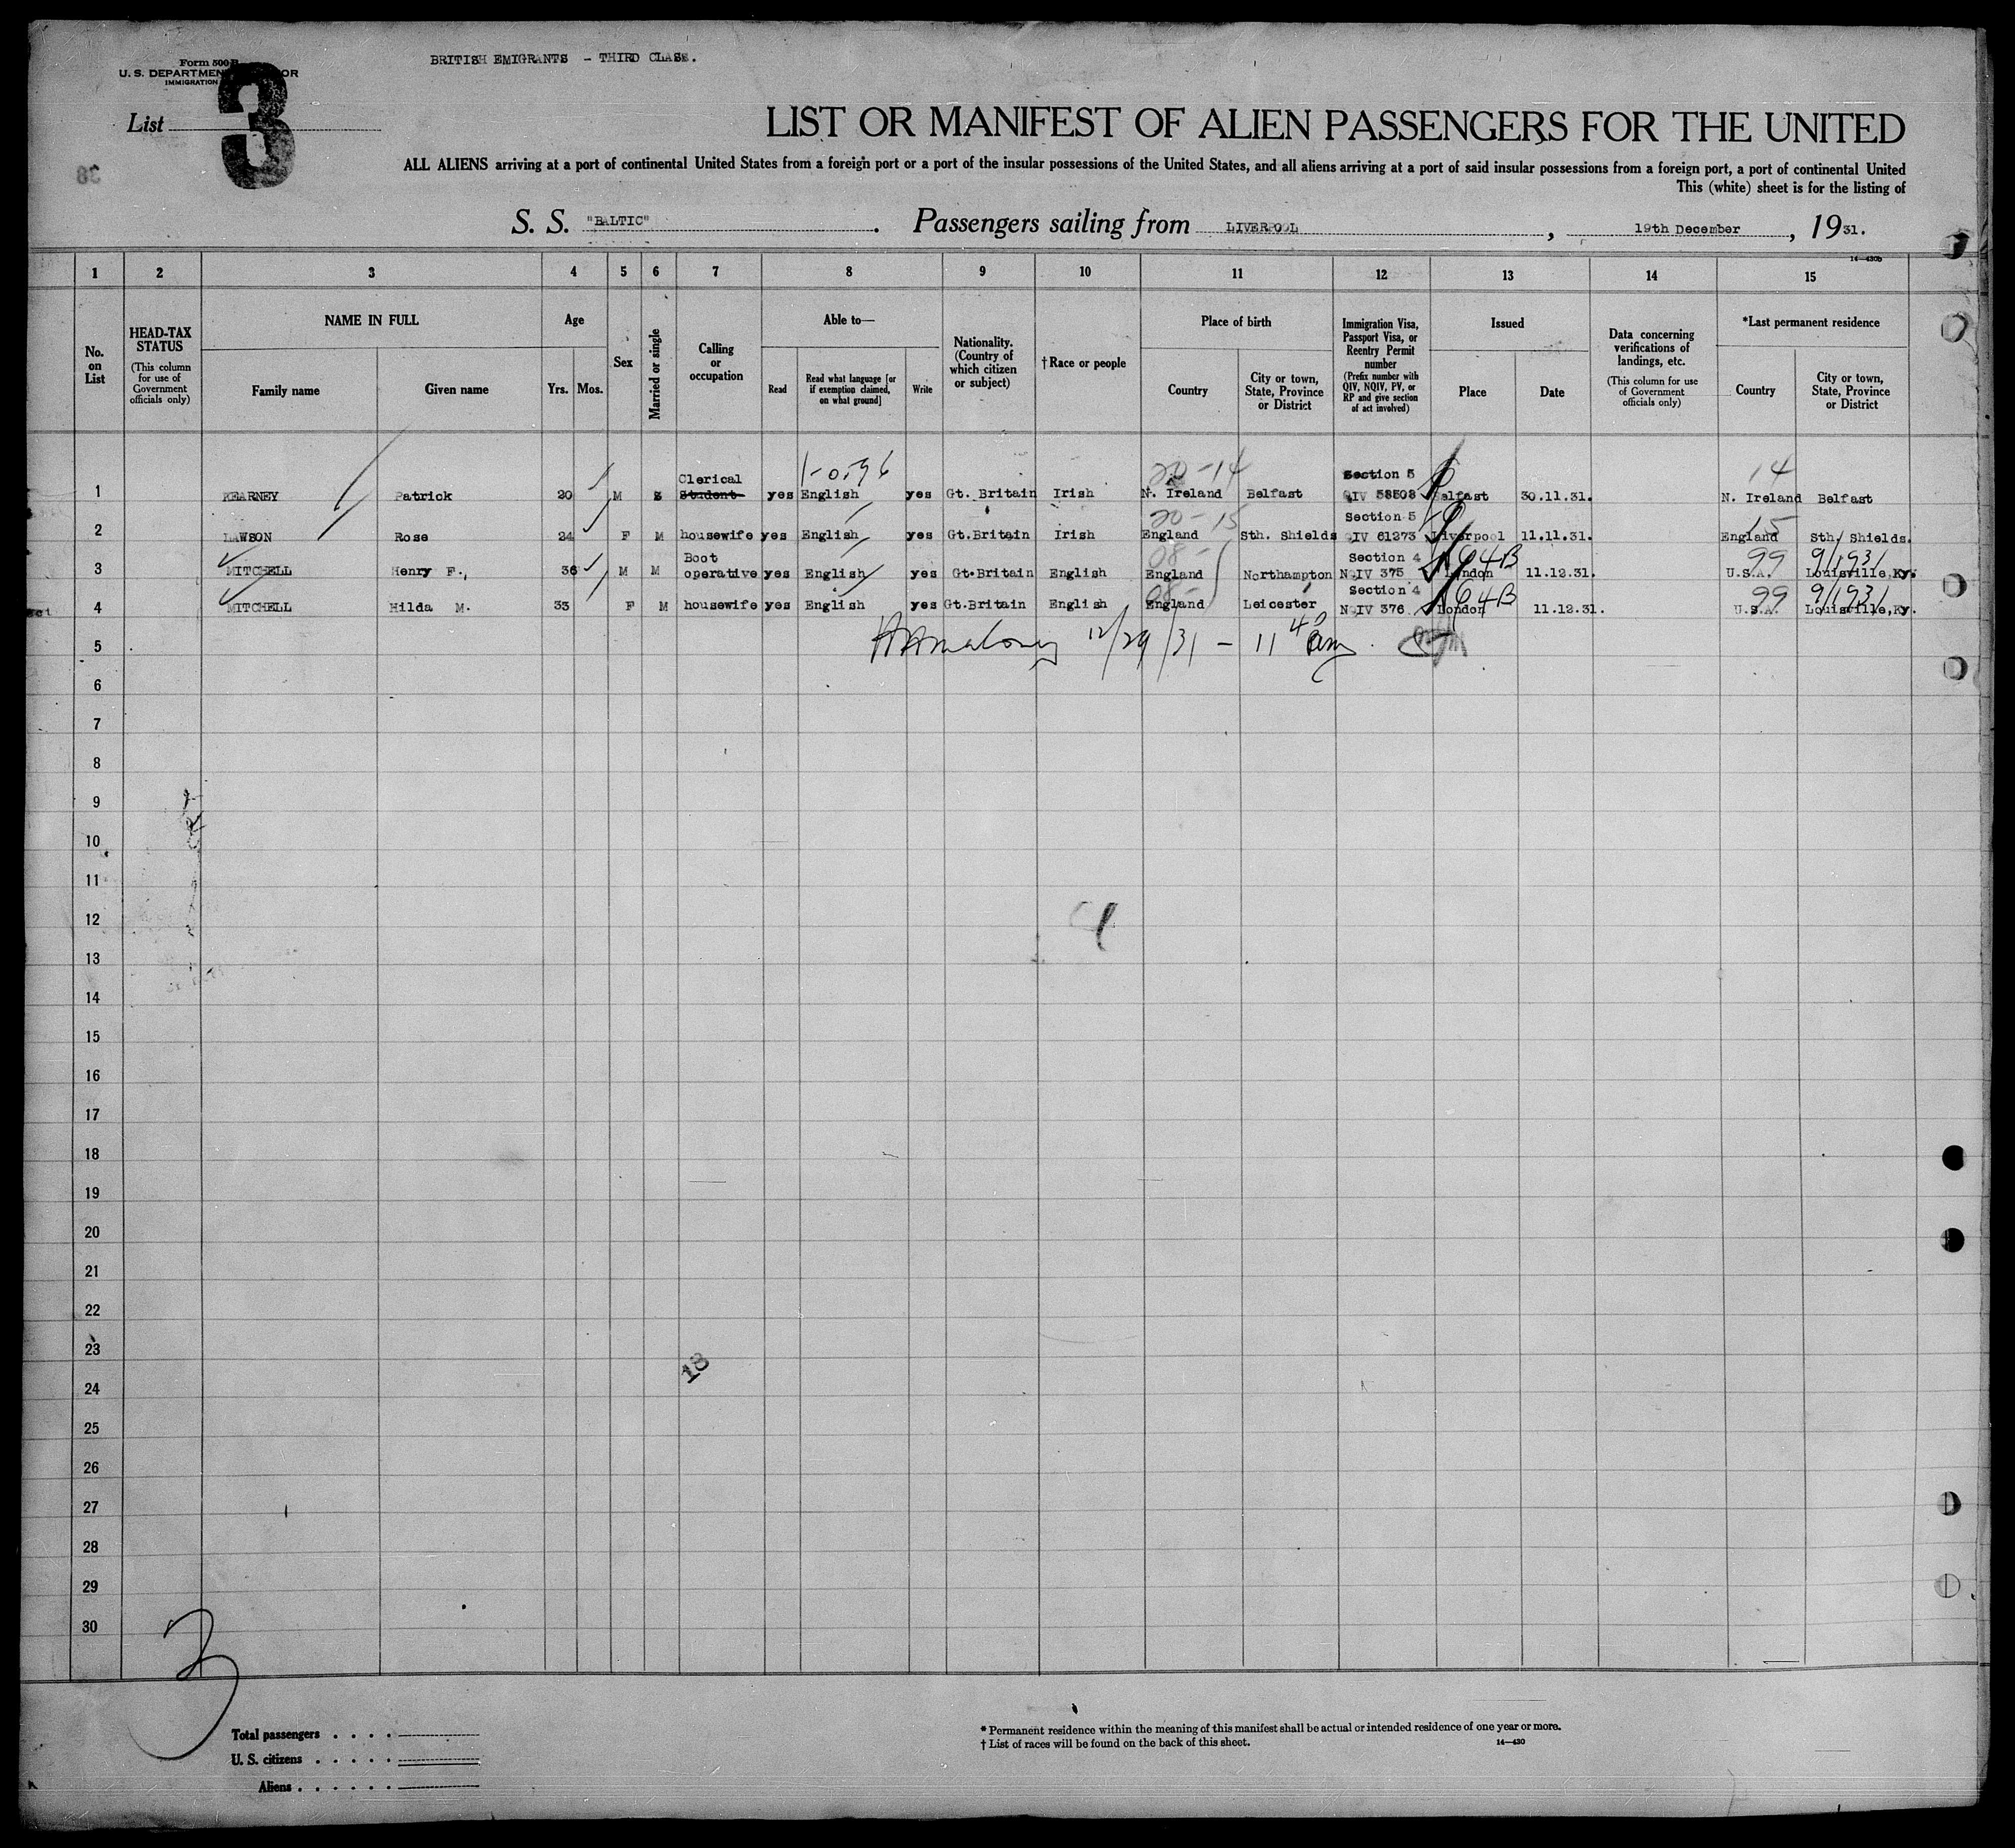 Form 500
U. S. DEPARTMENT OR
IMMIGRATION
BRITISH EMIGRANTS - THIRD CLASS.
List 3
LIST OR MANIFEST OF ALIEN PASSENGERS FOR THE UNITED
ALL ALIENS arriving at a port of continental United States from a foreign port or a port of the insular possessions of the United States, and all aliens arriving at a port of said insular possessions from a foreign port, a port of continental United
This (white) sheet is for the listing of
S. S. "BALTIC" . Passengers sailing from LIVERPOOL , 19th December , 1931.
14—430b
1 2 3 4 5 6 7 8 9 10 11 12 13 14 15
No. on List
HEAD-TAX STATUS
(This column for use of Government officials only)
NAME IN FULL
Family name Given name
Age
Yrs. Mos.
Sex
Married or single
Calling or occupation
Able to—
Read
Read what language [or if exemption claimed, on what ground]
Write
Nationality. (Country of which citizen or subject)
† Race or people
Place of birth
Country
City or town, State, Province or District
Immigration Visa, Passport Visa, or Reentry Permit number
(Prefix number with QIV, NQIV, PV, or RP and give section of act involved)
Issued
Place Date
Data concerning verifications of landings, etc.
(This column for use of Government officials only)
*Last permanent residence
Country
City or town, State, Province or District
Clerical 20-14 Section 5 14
1 KEARNEY Patrick 20 M S Student yes English yes Gt. Britain Irish N. Ireland Belfast QIV 58508 Belfast 30.11.31. N. Ireland Belfast
20-15 Section 5 15
2 LAWSON Rose 24 F M housewife yes English yes Gt.Britain Irish England Sth. Shields QIV 61273 Liverpool 11.11.31. England Sth. Shields.
Boot 08- Section 4 64B 99 9/1931
3 MITCHELL Henry F., 36 M M operative yes English yes Gt.Britain English England Northampton NQIV 375 London 11.12.31. U.S.A. Louisville,Ky.
08- Section 4 64B 99 9/1931
4 MITCHELL Hilda M. 33 F M housewife yes English yes Gt.Britain English England Leicester NQIV 376 London 11.12.31. U.S.A. Louisville,Ky.
5 12/29/31 - 11 40 am
6
7
8
9
10
11
12
13
14
15
16
17
18
19
20
21
22
23
18
24
25
26
27
28
29
30
3
Total passengers . . . .
U. S. citizens . . . . .
Aliens . . . . . .
* Permanent residence within the meaning of this manifest shall be actual or intended residence of one year or more.
† List of races will be found on the back of this sheet. 14—430